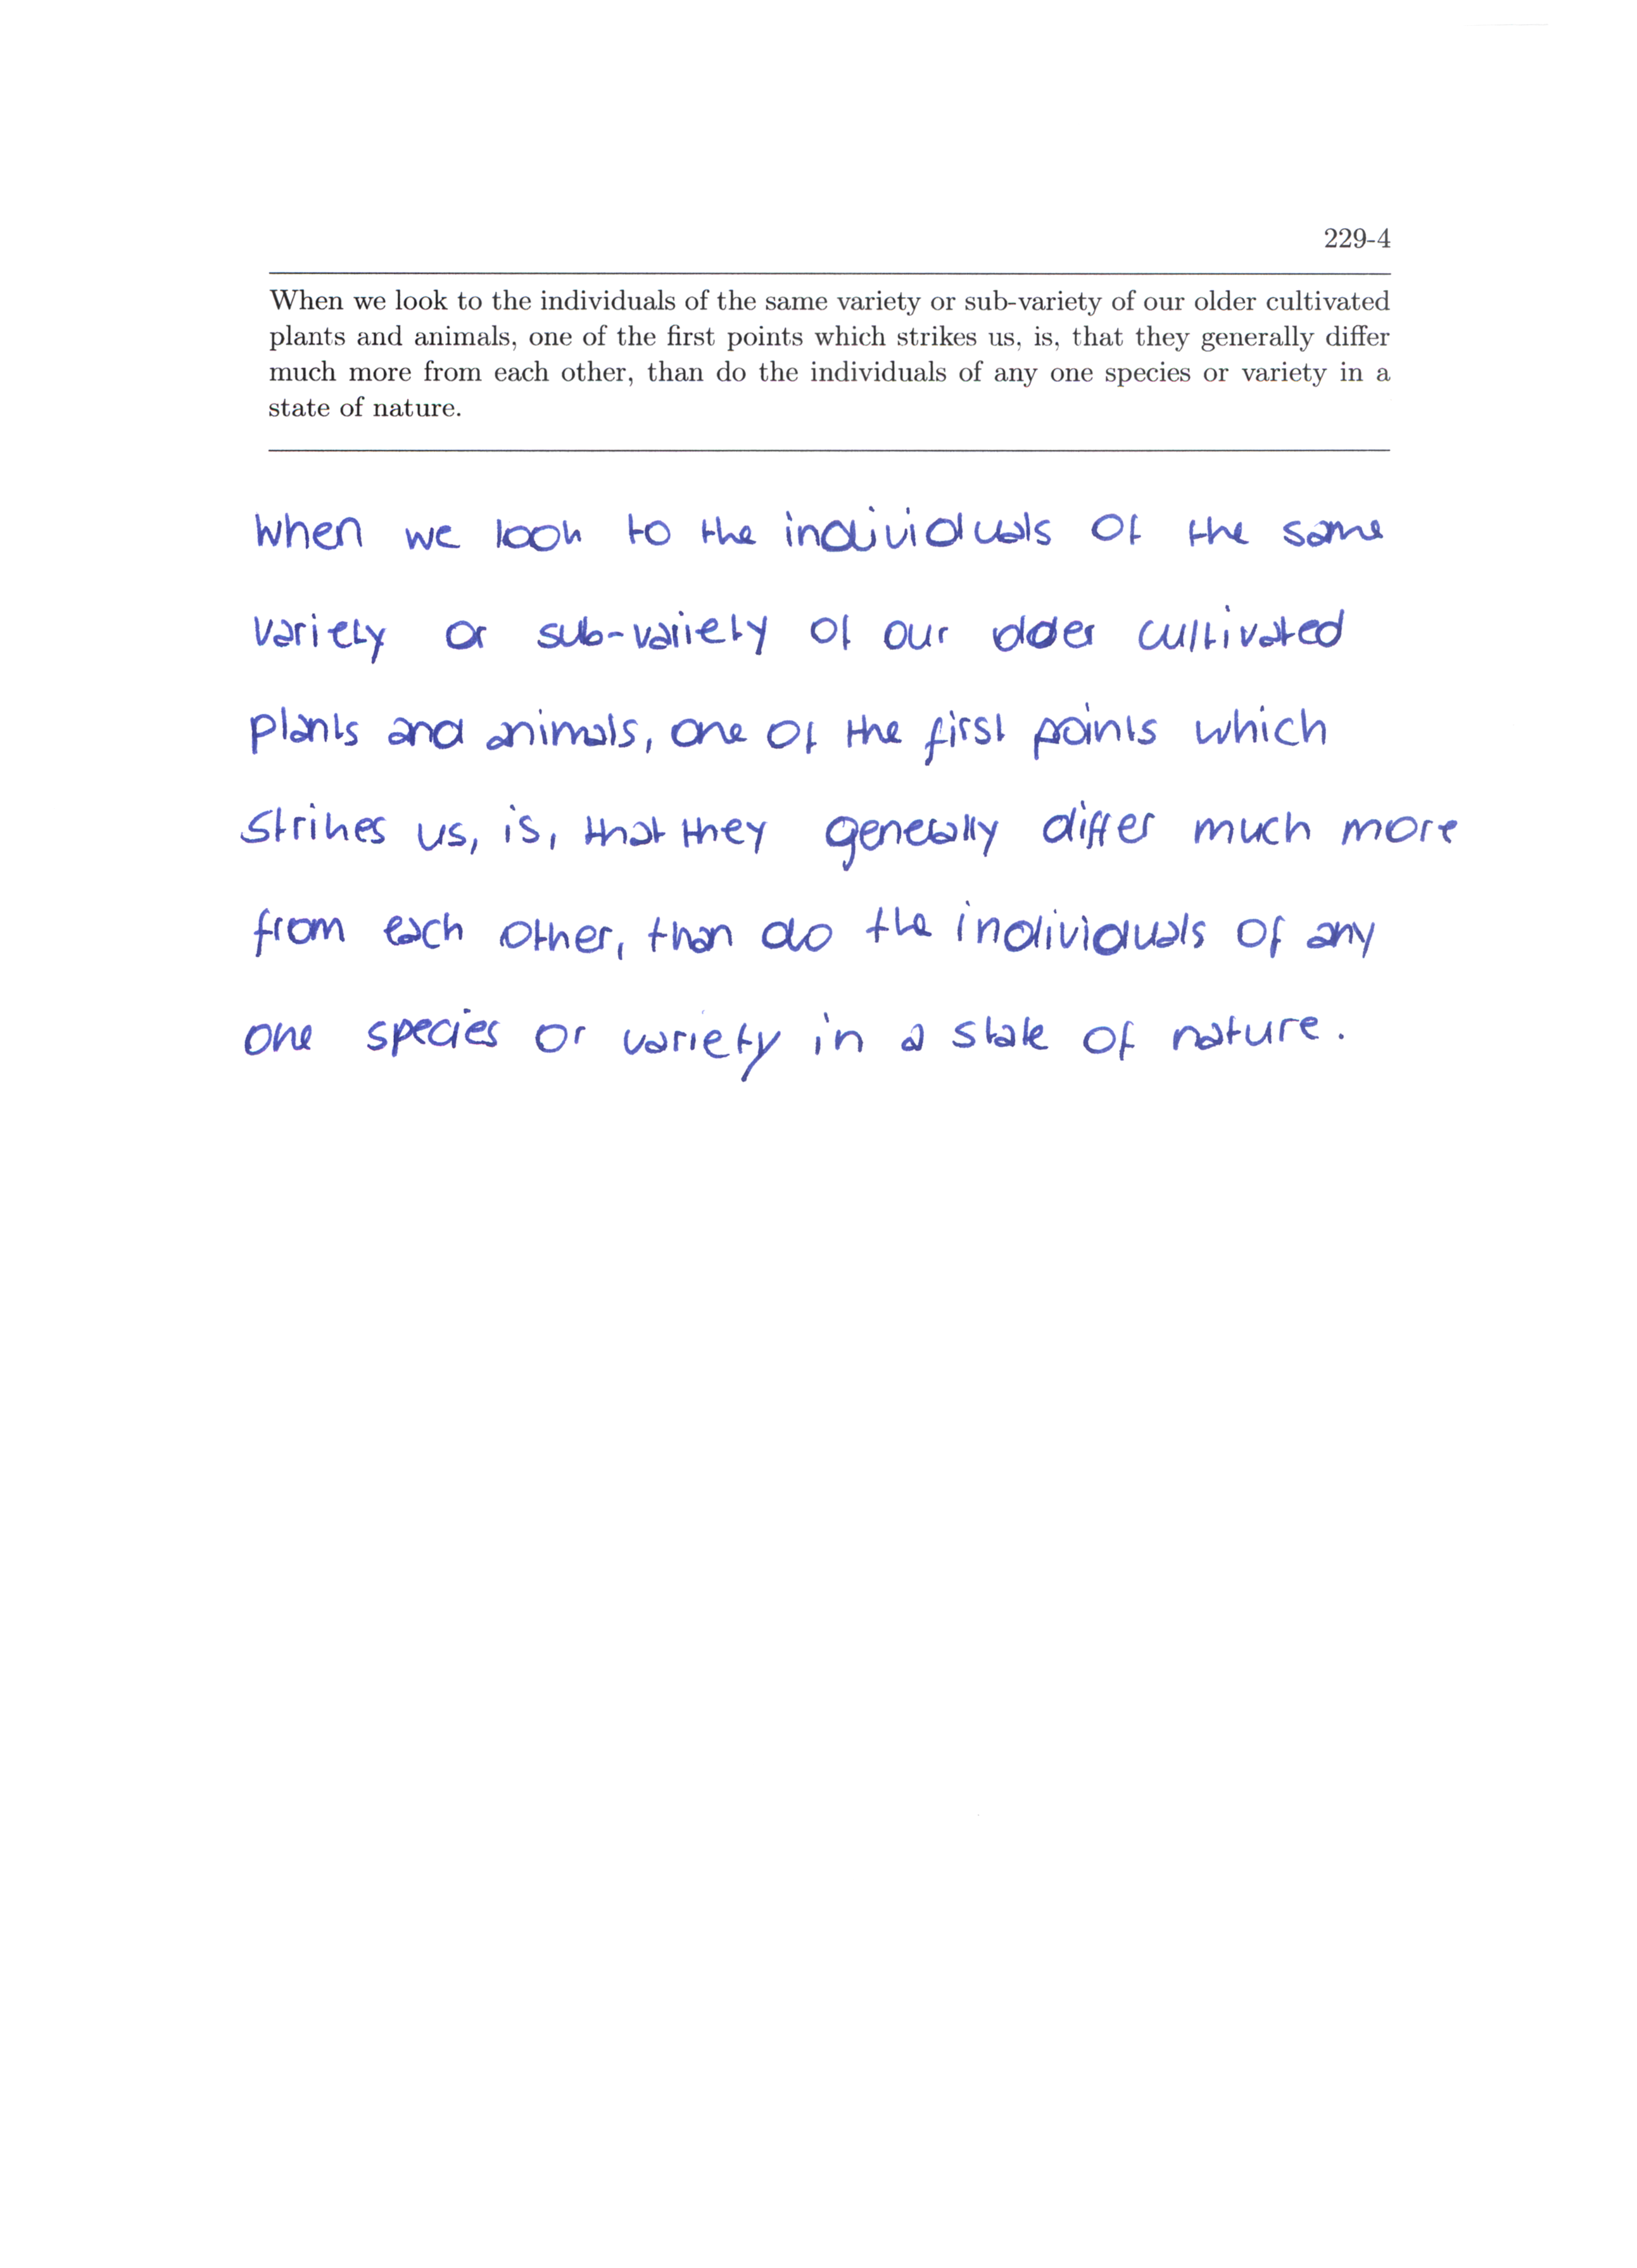 229-4
When we look to the individuals of the same variety or sub-variety of our older cultivated
plants and animals, one of the first points which strikes us, is, that they generally differ
much more from each other, than do the individuals of any one species or variety in a
state of nature.
When we look to the individuals of the same
variety or sub-variety of our older cultivated
plants and animals, one of the first points which
strikes us, is, that they generally differ much more
from each other, than do the individuals of any
one species or variety in a state of nature.